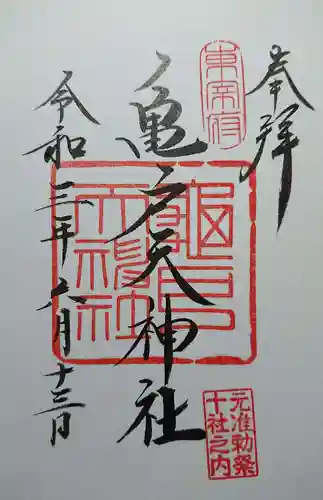 奉拝
東宰府
亀戸天神社
龜戸天神社
元准勅祭
十社之内
令和三年六月十三日